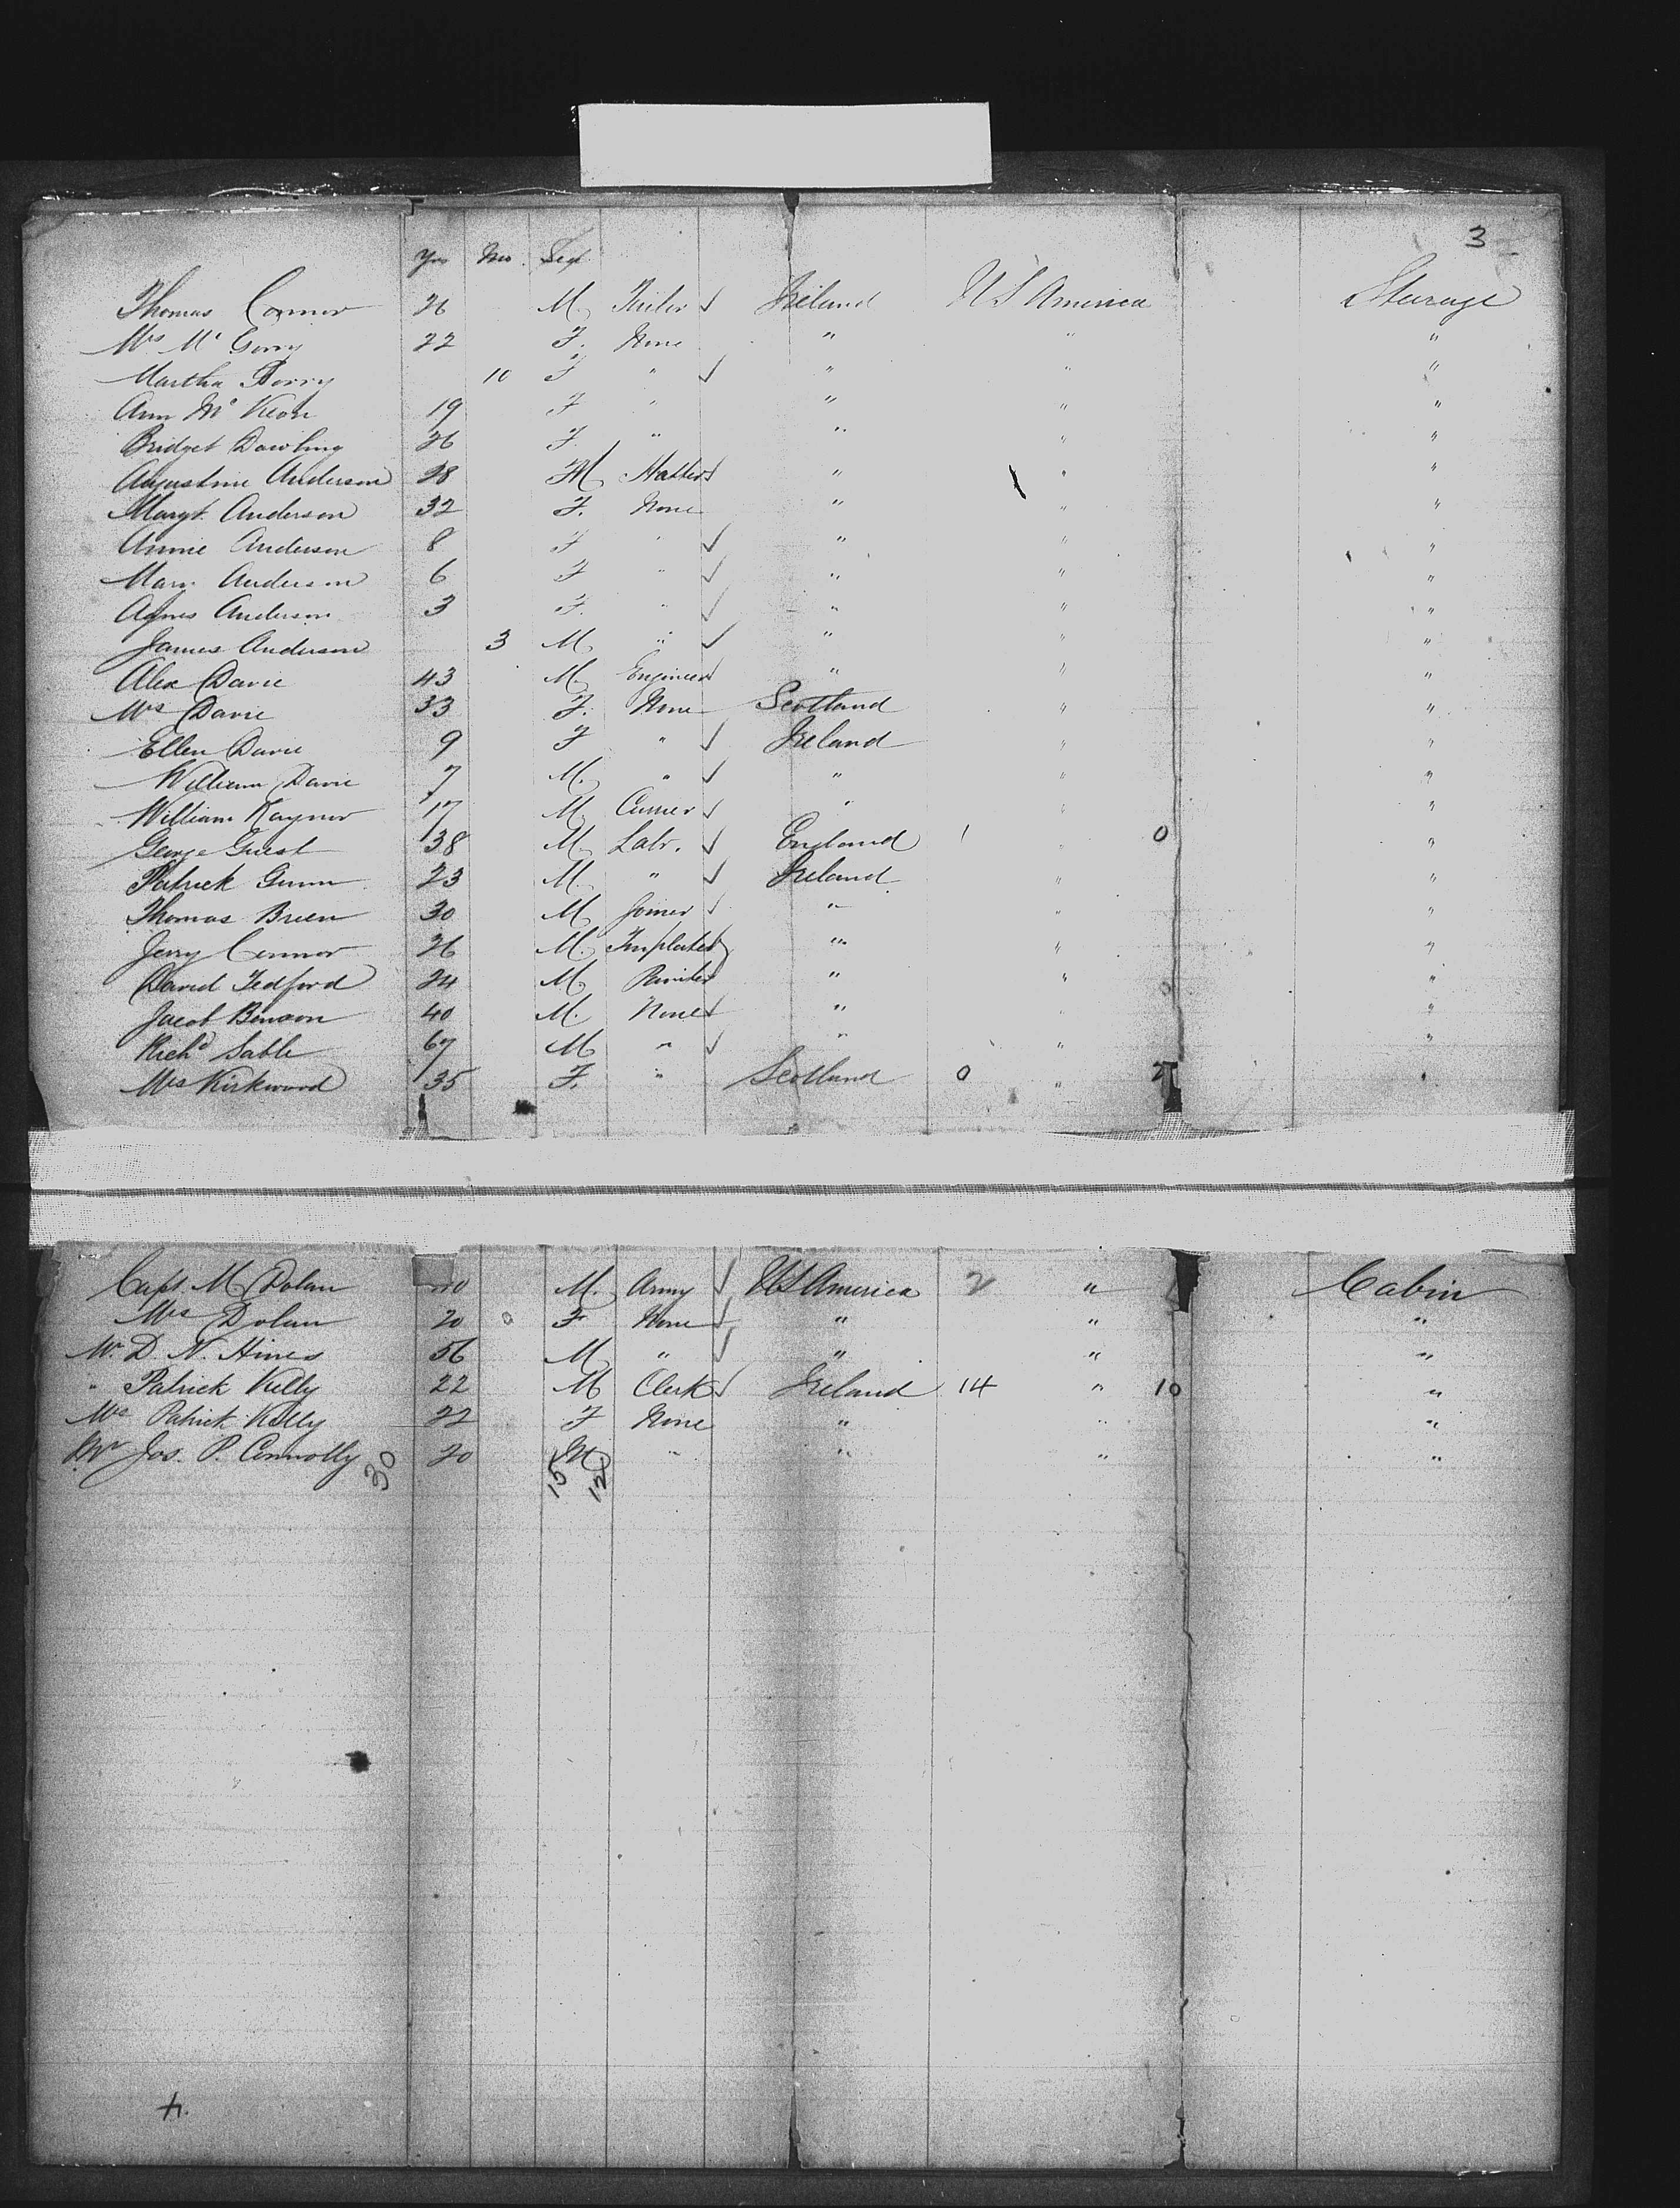 3
Yrs Mo. Sex
Thomas Connor 26 M. Tailor Ireland U S America Steerage
Mrs Mc Gorry 22 F. None " " "
Martha 10 F " " " "
Ann Mc Keon 19 F " " " "
Bridget Dowling 26 F. " " " "
Augustine Anderson 28 M Hatter " " "
Margt. Anderson 32 F. None " " "
Annie Anderson 8 F " " " "
Mary Anderson 6 F " " " "
Agnes Anderson 3 F. " " " "
James Anderson 3 M. " " " "
Alex Davie 43 M. Engineer " " "
Mrs Davie 33 F. None Scotland " "
Ellen Davie 9 F " Ireland " "
William Davie 7 M. " " " "
William Raynor 17 M. Currier " " "
George Guest 38 M. Labr. England 1 " 0 "
Patrick Gunn 23 M. " Ireland " "
Thomas Breen 30 M Joiner " " "
Jerry Connor 26 M. Tinplater " " "
David Tedford 24 M. " " "
Jacob Benson 40 M. None " " "
Richd Sable 67 M " " " "
Mrs Kirkwood 35 F. " Scotland 0 "
Capt. M Dolan M. Army U S America 2 " Cabin
Mrs Dolan 20 0 F None " " "
Mr. D. N. Hines 56 M " " " "
" Patrick Kelly 22 M Clerk Ireland 14 " 10 "
Mrs Patrick Kelly 22 F None " " "
Mr Jos. P. Connolly 20 M " " " "
30 15 12
4.